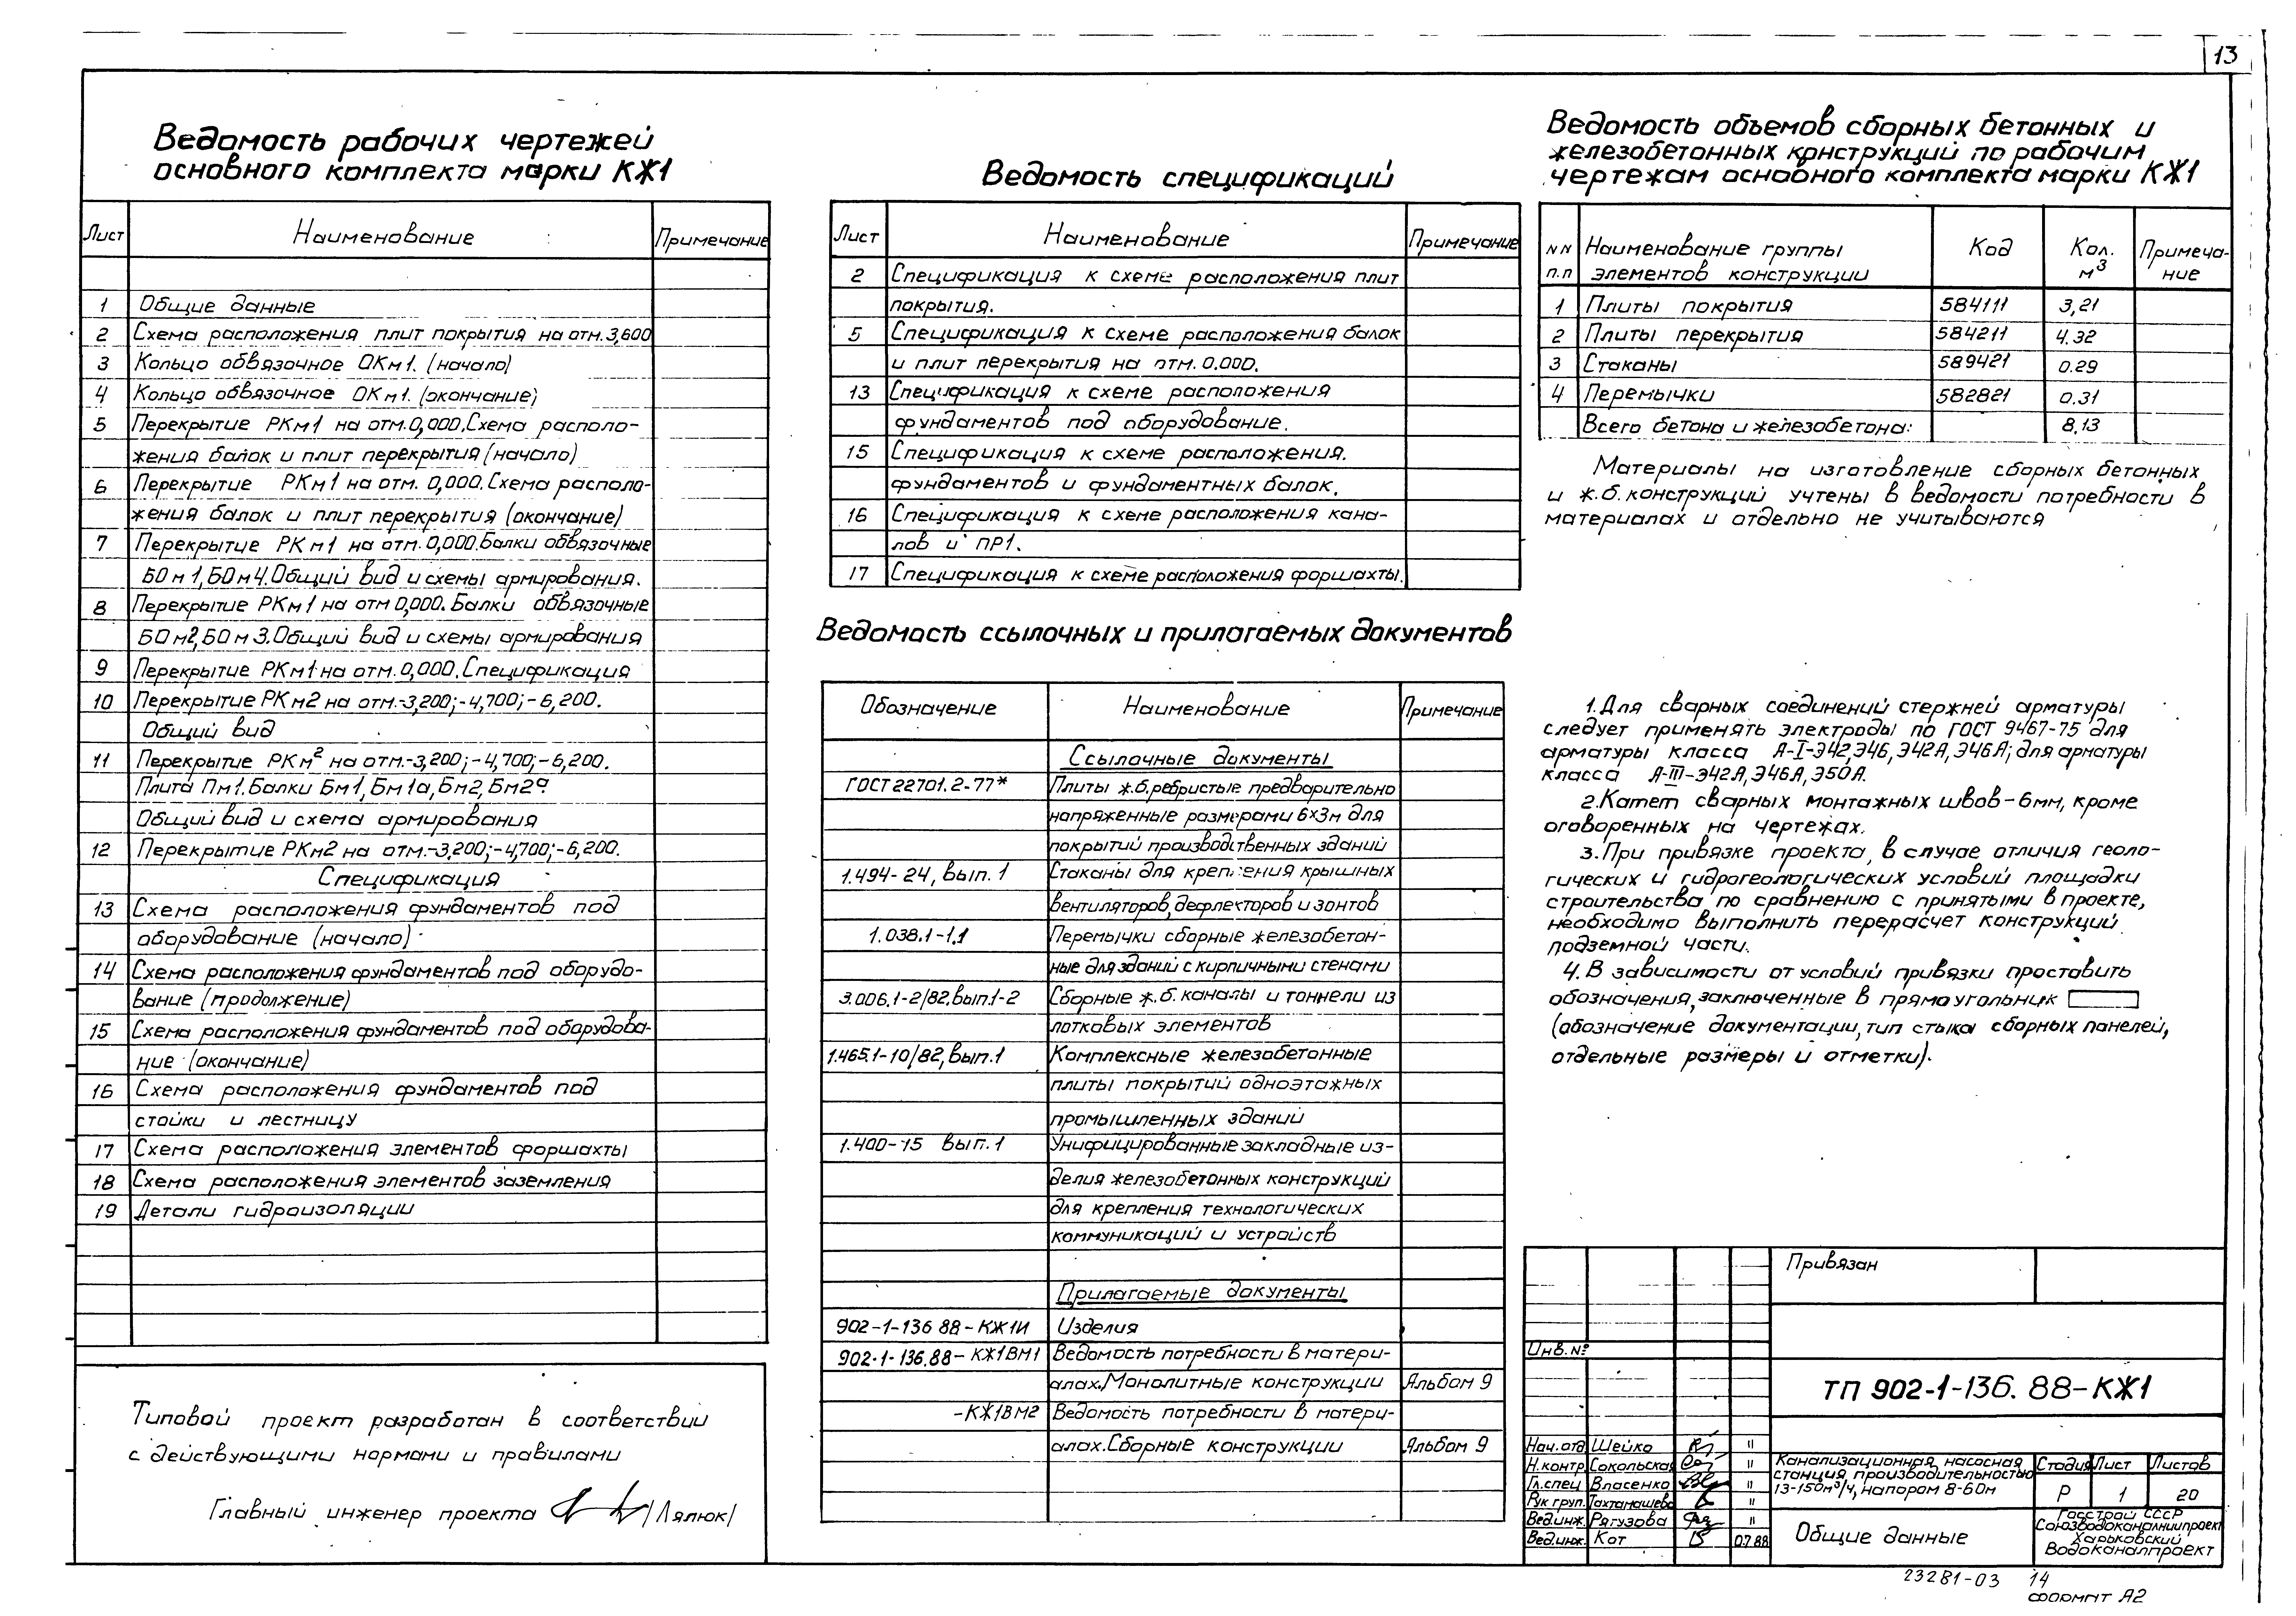 13
Ведомость рабочих чертежей
основного комплекта марки КЖ1
Лист Наименование Примечание
1 Общие данные
2 Схема расположения плит покрытия на отм. 3,600
3 Кольцо обвязочное ОКм1. (начало)
4 Кольцо обвязочное ОКм1. (окончание)
5 Перекрытие РКм1 на отм. 0,000. Схема располо-
жения балок и плит перекрытия (начало)
6 Перекрытие РКм1 на отм. 0,000. Схема располо-
жения балок и плит перекрытия (окончание)
7 Перекрытие РКм1 на отм. 0,000. Балки обвязочные
БОм1, БОм4. Общий вид и схемы армирования.
8 Перекрытие РКм1 на отм 0,000. Балки обвязочные
БОм2, БОм3. Общий вид и схемы армирования
9 Перекрытие РКм1 на отм. 0,000. Спецификация
10 Перекрытие РКм2 на отм.-3,200; -4,700; -6,200.
Общий вид
11 Перекрытие РКм2 на отм.-3,200; -4,700; -6,200.
Плита Пм1. Балки Бм1, Бм1а, Бм2, Бм2а
Общий вид и схема армирования
12 Перекрытие РКм2 на отм.-3,200; -4,700; -6,200.
Спецификация
13 Схема расположения фундаментов под
оборудование (начало)
14 Схема расположения фундаментов под оборудо-
вание (продолжение)
15 Схема расположения фундаментов под оборудова-
ние (окончание)
16 Схема расположения фундаментов под
стойки и лестницу
17 Схема расположения элементов форшахты
18 Схема расположения элементов заземления
19 Детали гидроизоляции
Типовой проект разработан в соответствии
с действующими нормами и правилами
Главный инженер проекта /Лялюк/
Ведомость спецификаций
Лист Наименование Примечание
2 Спецификация к схеме расположения плит
покрытия.
5 Спецификация к схеме расположения балок
и плит перекрытия на отм. 0.000.
13 Спецификация к схеме расположения
фундаментов под оборудование.
15 Спецификация к схеме расположения.
фундаментов и фундаментных балок.
16 Спецификация к схеме расположения кана-
лов и ПР1.
17 Спецификация к схеме расположения форшахты.
Ведомость ссылочных и прилагаемых документов
Обозначение Наименование Примечание
Ссылочные документы
ГОСТ 22701.2-77* Плиты ж.б. ребристые предварительно
напряженные размерами 6×3м для
покрытий производственных зданий
1.494-24, вып. 1 Стаканы для крепления крышных
вентиляторов, дефлекторов и зонтов
1.038.1-1.1 Перемычки сборные железобетон-
ные для зданий с кирпичными стенами
3.006.1-2/82, вып.1-2 Сборные ж.б. каналы и тоннели из
лотковых элементов
1.465.1-10/82, вып.1 Комплексные железобетонные
плиты покрытий одноэтажных
промышленных зданий
1.400-15 вып.1 Унифицированные закладные из-
делия железобетонных конструкций
для крепления технологических
коммуникаций и устройств
Прилагаемые документы
902-1-136 88-КЖ1И Изделия
902-1-136.88-КЖ1ВМ1 Ведомость потребности в матери-
алах. Монолитные конструкции Альбом 9
-КЖ1ВМ2 Ведомость потребности в матери-
алах. Сборные конструкции Альбом 9
Ведомость объемов сборных бетонных и
железобетонных конструкций по рабочим
чертежам основного комплекта марки КЖ1
NN п.п Наименование группы элементов конструкции Код Кол. м3 Примеча-ние
1 Плиты покрытия 584111 3,21
2 Плиты перекрытия 584211 4.32
3 Стаканы 589421 0.29
4 Перемычки 582821 0.31
Всего бетона и железобетона: 8.13
Материалы на изготовление сборных бетонных
и ж.б. конструкций учтены в ведомости потребности в
материалах и отдельно не учитываются
1. Для сварных соединений стержней арматуры
следует применять электроды по ГОСТ 9467-75 для
арматуры класса А-I-Э42, Э46, Э42А, Э46А; для арматуры
класса А-III-Э42А, Э46А, Э50А.
2. Катет сварных монтажных швов-6мм, кроме
оговоренных на чертежах.
3. При привязке проекта, в случае отличия геоло-
гических и гидрогеологических условий площадки
строительства по сравнению с принятыми в проекте,
необходимо выполнить перерасчет конструкций
подземной части.
4. В зависимости от условий привязки проставить
обозначения, заключенные в прямоугольник
(обозначение документации, тип стыка сборных панелей,
отдельные размеры и отметки).
Привязан
Инв. №
ТП 902-1-136.88-КЖ1
Нач. отд. Шейко "
Н.контр. Сокольская "
Гл.спец Власенко "
Рук груп. Тахтамашева "
Вед.инж. Рягузова "
Вед.инж. Кот 07.88
Канализационная насосная
станция производительностью
13-150м³/ч, напором 8-60м
Стадия Лист Листов
Р 1 20
Общие данные
Госстрой СССР
Союзводоканалниипроект
Харьковский
Водоканалпроект
23281-03 14
формат А2